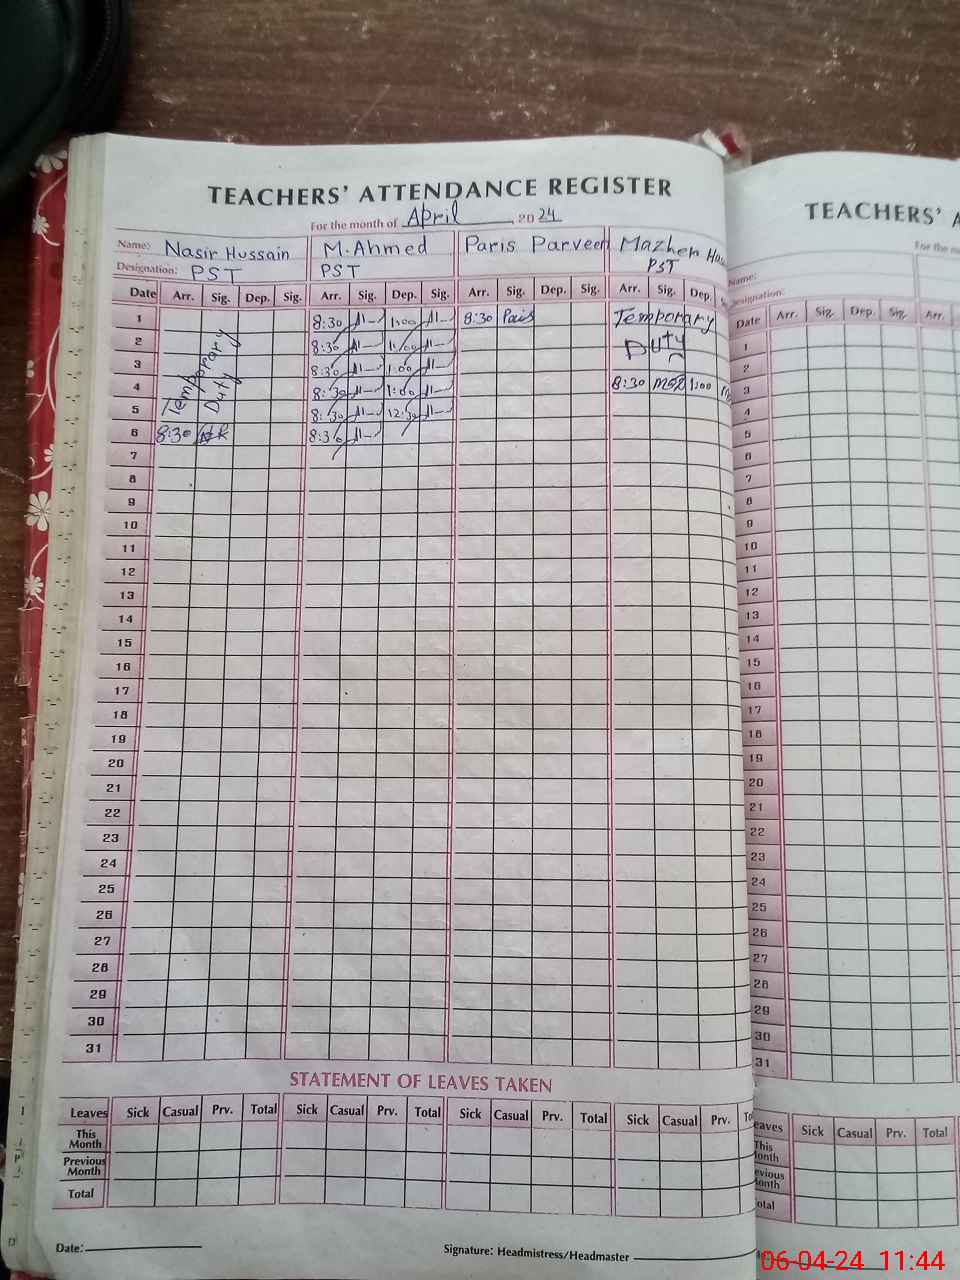 TEACHERS' ATTENDANCE REGISTER
For the month of April 2024
Name: Nasir Hussain M.Ahmed Paris Parveen Mazher
Designation: PST PST PST
Date Arr. Sig. Dep. Sig. Arr. Sig. Dep. Sig. Arr. Sig. Dep. Sig. Arr. Sig. Dep.
1 8:30 1:00 8:30 Paris Temporary
2 Temporary Duty 8:30 1:00 Duty
3 8:30 1:00
4 8:30 1:00 8:30 1:00
5 8:30 12:30
6 8:30 8:30
7
8
9
10
11
12
13
14
15
16
17
18
19
20
21
22
23
24
25
26
27
28
29
30
31
STATEMENT OF LEAVES TAKEN
Leaves Sick Casual Prv. Total Sick Casual Prv. Total Sick Casual Prv. Total Sick Casual Prv.
This Month
Previous Month
Total
Date: Signature: Headmistress/Headmaster
TEACHERS'
For the
Name:
Designation:
Date Arr. Sig. Dep. Sig. Arr.
1
2
3
4
5
6
7
8
9
10
11
12
13
14
15
16
17
18
19
20
21
22
23
24
25
26
27
28
29
30
31
eaves Sick Casual Prv. Total
This
onth
evious
onth
otal
06-04-24 11:44